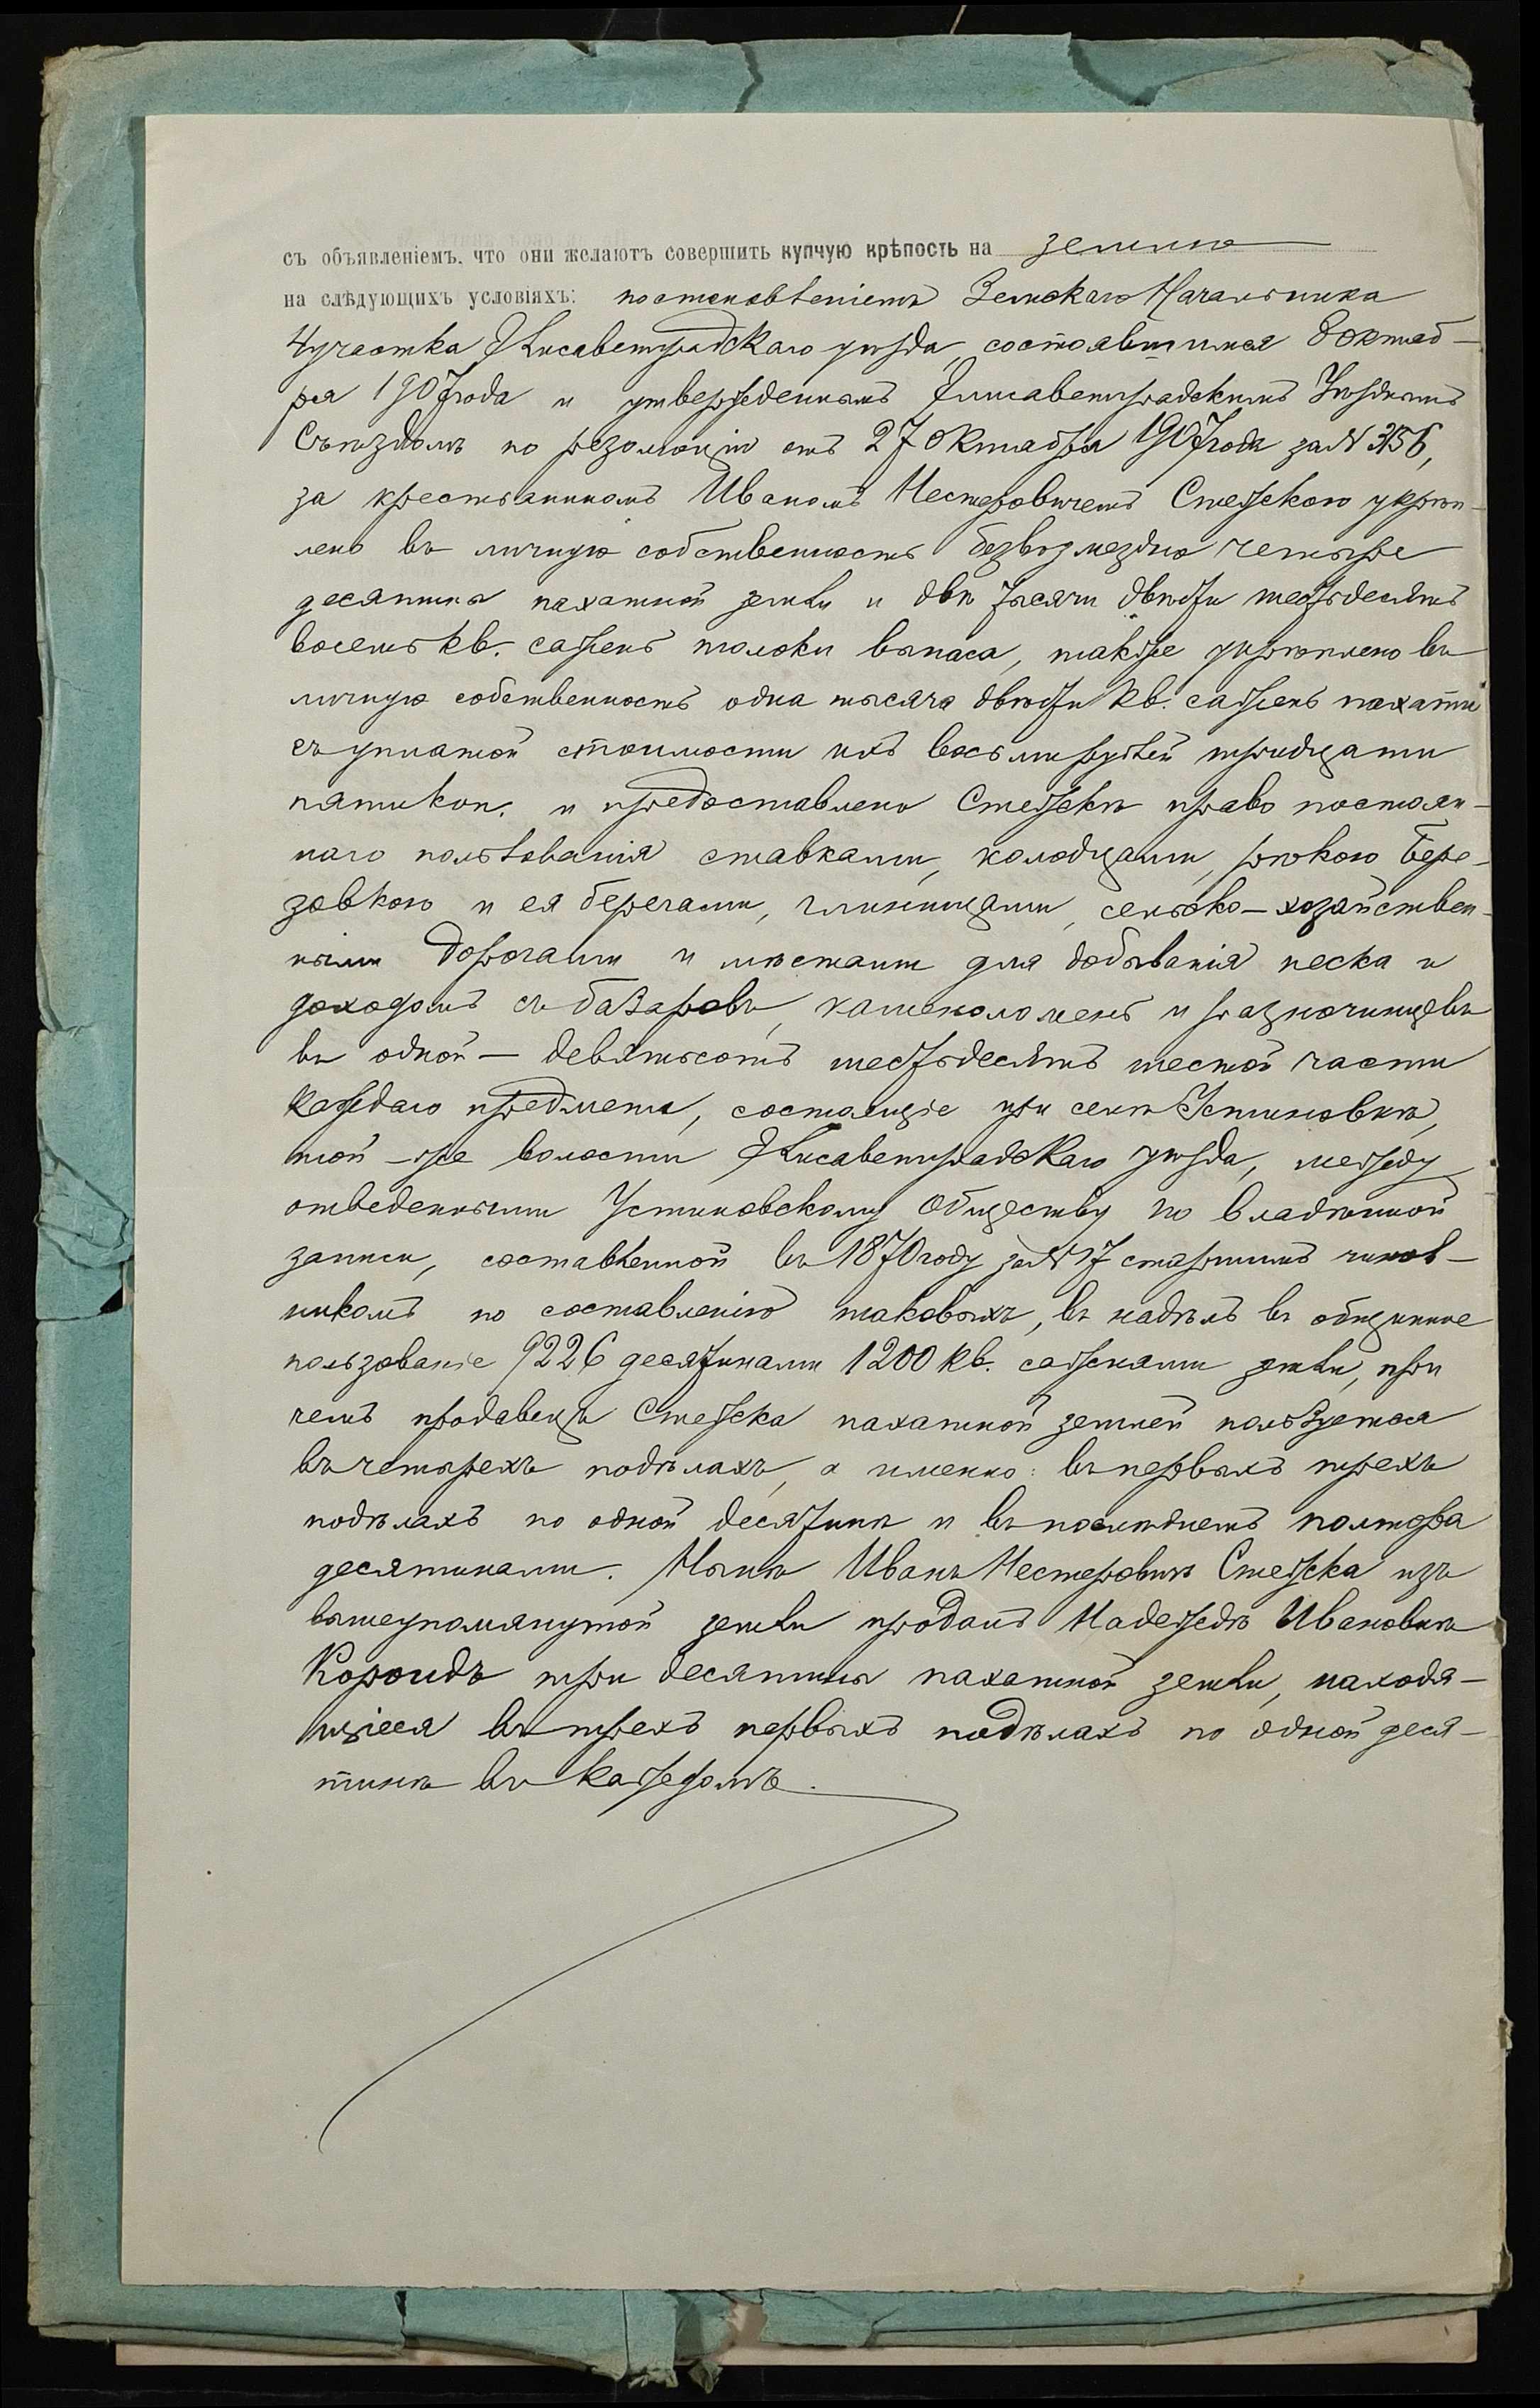 съ объявленіемъ, что они желаютъ совершить купчую крѣпость на землю
на слѣдующихъ условіяхъ: постановленіемъ Земскаго Начальника
4 участка Елисаветградскаго уѣзда, состоявшимся 8 октяб-
ря 1907 года и утвержденнымъ Елисаветградскимъ Уѣзднымъ
Съѣздомъ по резолюціи отъ 27 октября 1907 года за N 3156,
за крестьяниномъ Иваномъ Нестеровичемъ Стежкою укрѣп-
лено въ личную собственность безвозмездно четыре
десятины пахатной земли и двѣ тысячи двѣсти шестьдесятъ
восемь кв. сажень толоки выпаса, также укрѣплено въ
личную собственность одна тысяча двѣсти кв. сажень пахатни
съ уплатой стоимости ихъ восьми рублей тридцати
пяти коп. и предоставлено Стежкѣ право постоян-
наго пользованія ставками, колодцами, рѣкою Бере-
зовкою и ея берегами, глинищами, сельско-хозяйствен-
ными дорогами и мѣстами для добыванія песка и
доходомъ съ базаровъ, каменоломень и разночинцевъ
въ одной - девятьсотъ шестьдесятъ шестой части
каждаго предмета, состоящіе при селѣ Устиновкѣ,
той-же волости Елисаветградскаго уѣзда, между
отведенными Устиновскому Обществу по владѣнной
записи, составленной въ 1870 году за N 17 старшимъ чинов-
никомъ по составленію таковыхъ, въ надѣлъ въ общинное
пользованіе 9226 десятинами 1200 кв. саженями земли, при
чемъ продавецъ Стежка пахатной землей пользуется
въ четырехъ подѣлахъ, а именно: въ первыхъ трехъ
подѣлахъ по одной десятинѣ и въ послѣднемъ полтора
десятинами. Нынѣ Иванъ Нестеровичъ Стежка изъ
вышеупомянутой земли продалъ Надеждѣ Ивановнѣ
Короидъ три десятины пахатной земли, находя-
щіеся въ трехъ первыхъ подѣлахъ по одной деся-
тинѣ въ каждомъ.